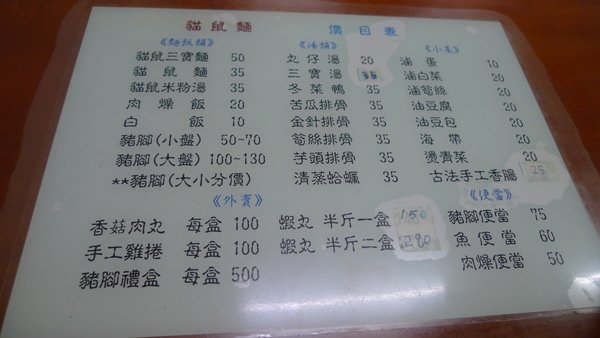 貓鼠麵 價目表
《麵飯類》
貓鼠三寶麵 50
貓鼠麵 35
貓鼠米粉湯 35
肉燥飯 20
白飯 10
豬腳(小盤) 50~70
豬腳(大盤) 100~130
**豬腳(大小分價)
《湯類》
丸仔湯 20
三寶湯 35
冬菜鴨 35
苦瓜排骨 35
金針排骨 35
筍絲排骨 35
芋頭排骨 35
清蒸蛤蠣 35
《小菜》
滷蛋 10
滷白菜 20
滷筍絲 20
油豆腐 20
油豆包 20
海帶 20
燙青菜 20
古法手工香腸 25
《外賣》
香菇肉丸 每盒 100
手工雞捲 每盒 100
豬腳禮盒 每盒 500
蝦丸 半斤一盒 150
蝦丸 半斤二盒 290
《便當》
豬腳便當 75
魚便當 60
肉燥便當 50